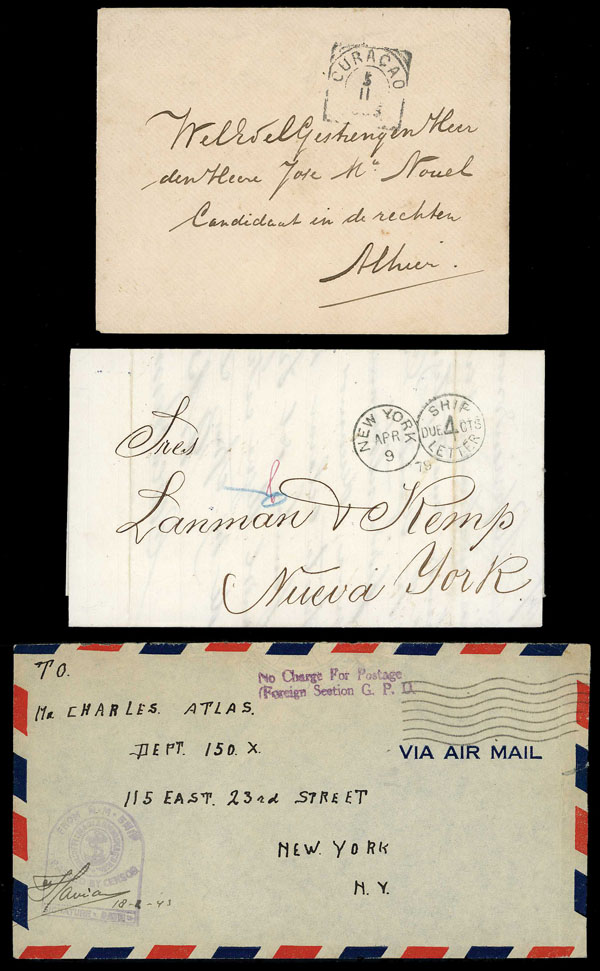 CURAÇAO
5
11
WelEdelGestrengen Heer
den Heere Jose Ma. Nouel
Candidaat in de rechten
Alhier.
NEW YORK
APR
9
SHIP
DUE 4 CTS
LETTER
79
Sres
8
Lanman & Kemp
Nueva York
TO.
No Charge For Postage
(Foreign Section G. P. O.
Mr CHARLES. ATLAS.
VIA AIR MAIL
DEPT. 150. X.
115 EAST. 23rd STREET
NEW. YORK
N. Y.
FROM H.M. SHIP
CENSOR